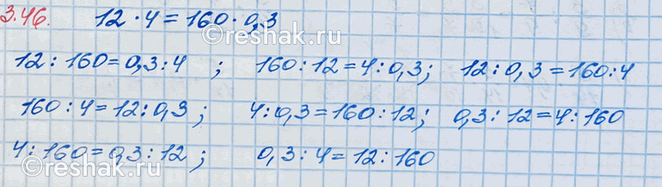 3.46. 12 · 4 = 160 · 0,3
12 : 160 = 0,3 : 4 ; 160 : 12 = 4 : 0,3 ; 12 : 0,3 = 160 : 4
160 : 4 = 12 : 0,3 ; 4 : 0,3 = 160 : 12 ; 0,3 : 12 = 4 : 160
4 : 160 = 0,3 : 12 ; 0,3 : 4 = 12 : 160